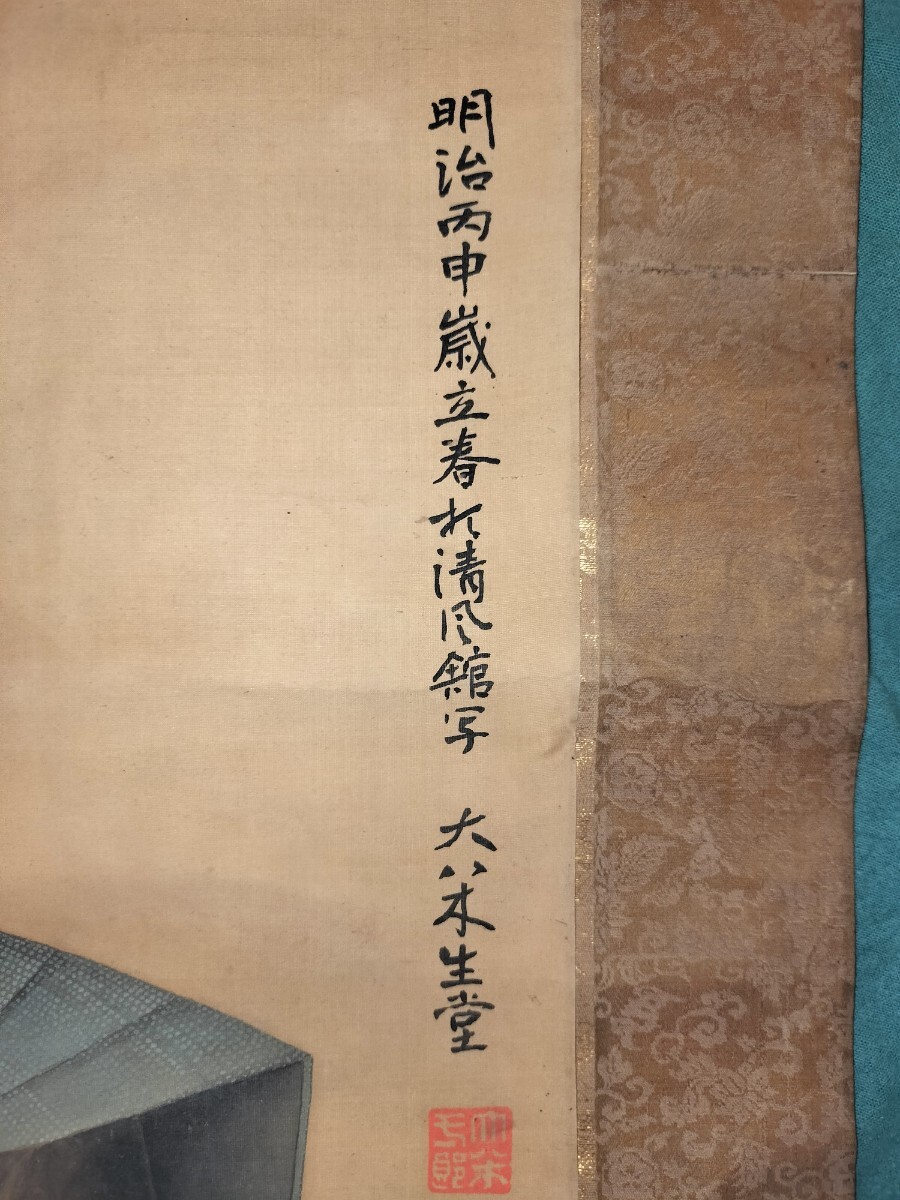 明治丙申歳立春於清風館写 大八木生堂